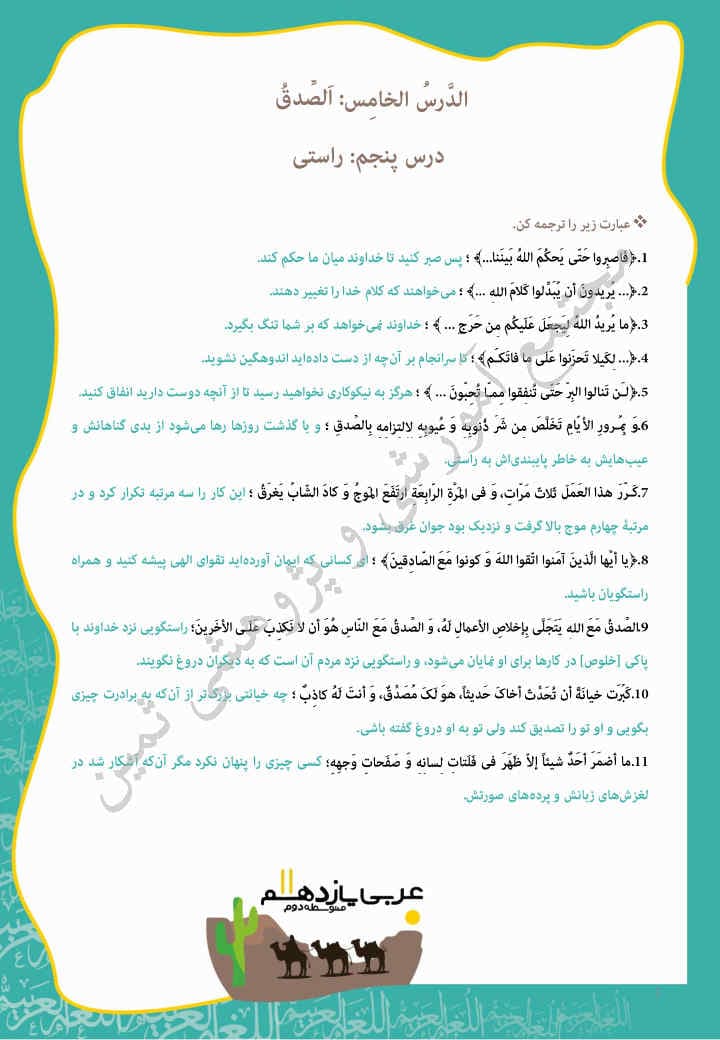 الدَّرسُ الخامِس: اَلصِّدقُ
درس پنجم: راستی
❖ عبارت زیر را ترجمه کن.
1.﴿فَاصبِروا حَتّی یَحکُمَ اللهُ بَینَنا...﴾ ؛ پس صبر کنید تا خداوند میان ما حکم کند.
2.﴿... یریدونَ أن یُبَدِّلوا کَلامَ اللهِ ...﴾ ؛ می‌خواهند که کلام خدا را تغییر دهند.
3.﴿ما یُریدُ اللهُ لِیَجعَلَ عَلَیکُم مِن حَرَجٍ ... ﴾ ؛ خداوند نمی‌خواهد که بر شما تنگ بگیرد.
4.﴿... لِکَیلا تَحزَنوا عَلَی ما فاتَکُـم﴾ ؛ تا سرانجام بر آن‌چه از دست داده‌اید اندوهگین نشوید.
5.﴿لَـن تَنالوا البِرَّ حَتَّی تُنفِقوا مِمـّا تُحِبّونَ ... ﴾ ؛ هرگز به نیکوکاری نخواهید رسید تا از آنچه دوست دارید انفاق کنید.
6.وَ بِمُـرورِ الأیّامِ تَخَلَّصَ مِن شَرِّ ذُنوبِهِ وَ عُیوبِهِ لِالتِزامِهِ بِالصِّدقِ ؛ و با گذشت روزها رها می‌شود از بدی گناهانش و
عیب‌هایش به خاطر پایبندی‌اش به راستی.
7.کَـرَّرَ هذا العَمَلَ ثَلاثَ مَرّاتٍ، وَ فی المَرَّةِ الرّابِعَةِ اِرتَفَعَ المَوجُ وَ کادَ الشّابُّ یَغرَقُ ؛ این کار را سه مرتبه تکرار کرد و در
مرتبهٔ چهارم موج بالا گرفت و نزدیک بود جوان غرق بشود.
8.﴿یا أیُّها الَّذینَ آمَنوا اتَّقوا اللهَ وَ کونوا مَعَ الصّادِقینَ﴾ ؛ ای کسانی که ایمان آورده‌اید تقوای الهی پیشه کنید و همراه
راستگویان باشید.
9.الصِّدقُ مَعَ اللهِ یَتَجَلَّی بِإخلاصِ الأعمالِ لَهُ، وَ الصِّدقُ مَعَ النّاسِ هُوَ أن لا نَکذِبَ عَلـَی الآخَرینَ؛ راستگویی نزد خداوند با
پاکی [خلوص] در کارها برای او نمایان می‌شود، و راستگویی نزد مردم آن است که به دیگران دروغ نگویند.
10.کَبُرَت خیانَةً أن تُحَدِّثَ أخاکَ حَدیثاً، هوَ لَکَ مُصَدِّقٌ، وَ أنتَ لَهُ کاذِبٌ ؛ چه خیانتی بزرگ‌تر از آن‌که به برادرت چیزی
بگویی و او تو را تصدیق کند ولی تو به او دروغ گفته باشی.
11.ما أضمَرَ أحَدٌ شَیئاً إلاّ ظَهَرَ فی فَلَتاتِ لِسانِهِ وَ صَفَحاتِ وَجهِهِ؛ کسی چیزی را پنهان نکرد مگر آن‌که آشکار شد در
لغزش‌های زبانش و پرده‌های صورتش.
مجتمع آموزشی و پژوهشی ثمین
عربی یازدهم
متوسطه دوم